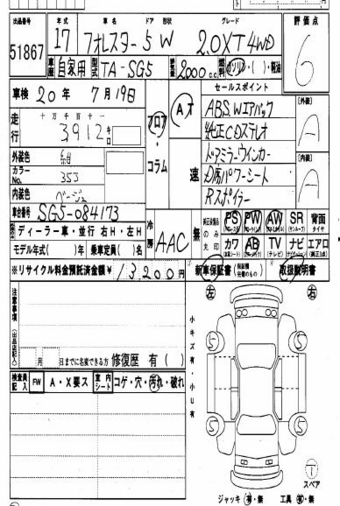 出品番号 年式 車名 ドア 形状 グレード 評価点
51867 17 フォレスター 5 W 2.0XT 4WD 6
車歴 自家用 型式 TA-SG5 排気量 2000cc 燃料 ガソリン・( )・軽油
車検 20年 7月19日 セールスポイント
走行 十万千百十一 フロア・コラム AT 速
3912 キロ
ABS Wエアバック 【外装】
純正CDステレオ A
ドアミラーウインカー
D席パワーシート 【内装】
Rスポイラー A
外装色 紺
カラーNo. 353
内装色 ベージュ
車台番号 SG5-084173
ディーラー車・並行 右H・左H 冷房 AAC 無
純正装備品のみ○印 PS PW AW SR 背面タイヤ
モデル年式( )年 乗車定員( )名
カワ AB TV ナビ エアロ
※リサイクル料金預託済金額¥ 13,200円 新車保証書 取扱説明書
注意事項
(出品店記入)
左 右
小キズ有・小U有
月 日までに名変できる方 修復歴 有 ( )
検査員記入 FW A・X要 室内シート コゲ・穴・汚れ・破れ
S S
S S
1
スペア
ジャッキ 有・無 工具 有・無